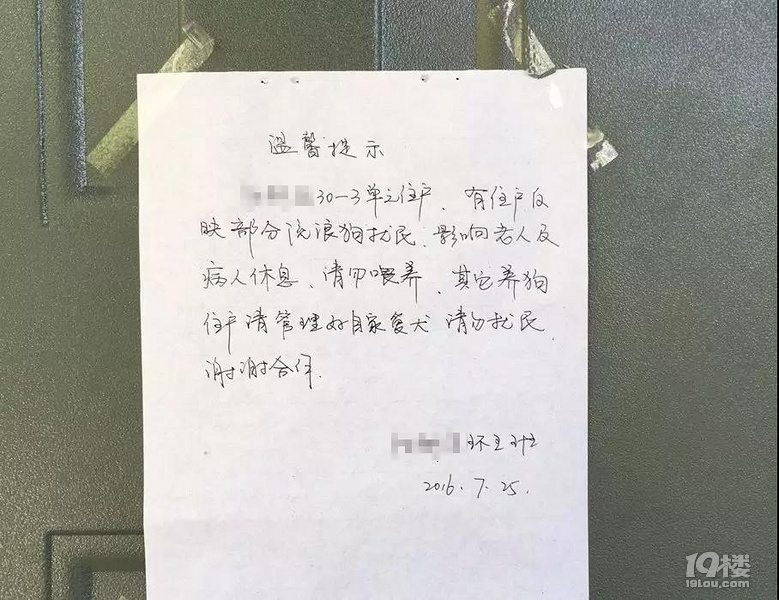 温馨提示
30-3单元住户、有住户反
映部分流浪狗扰民、影响老人及
病人休息、请勿喂养、其它养狗
住户请管理好自家爱犬 请勿扰民、
谢谢合作.
2016.7.25.
19楼
19lou.com